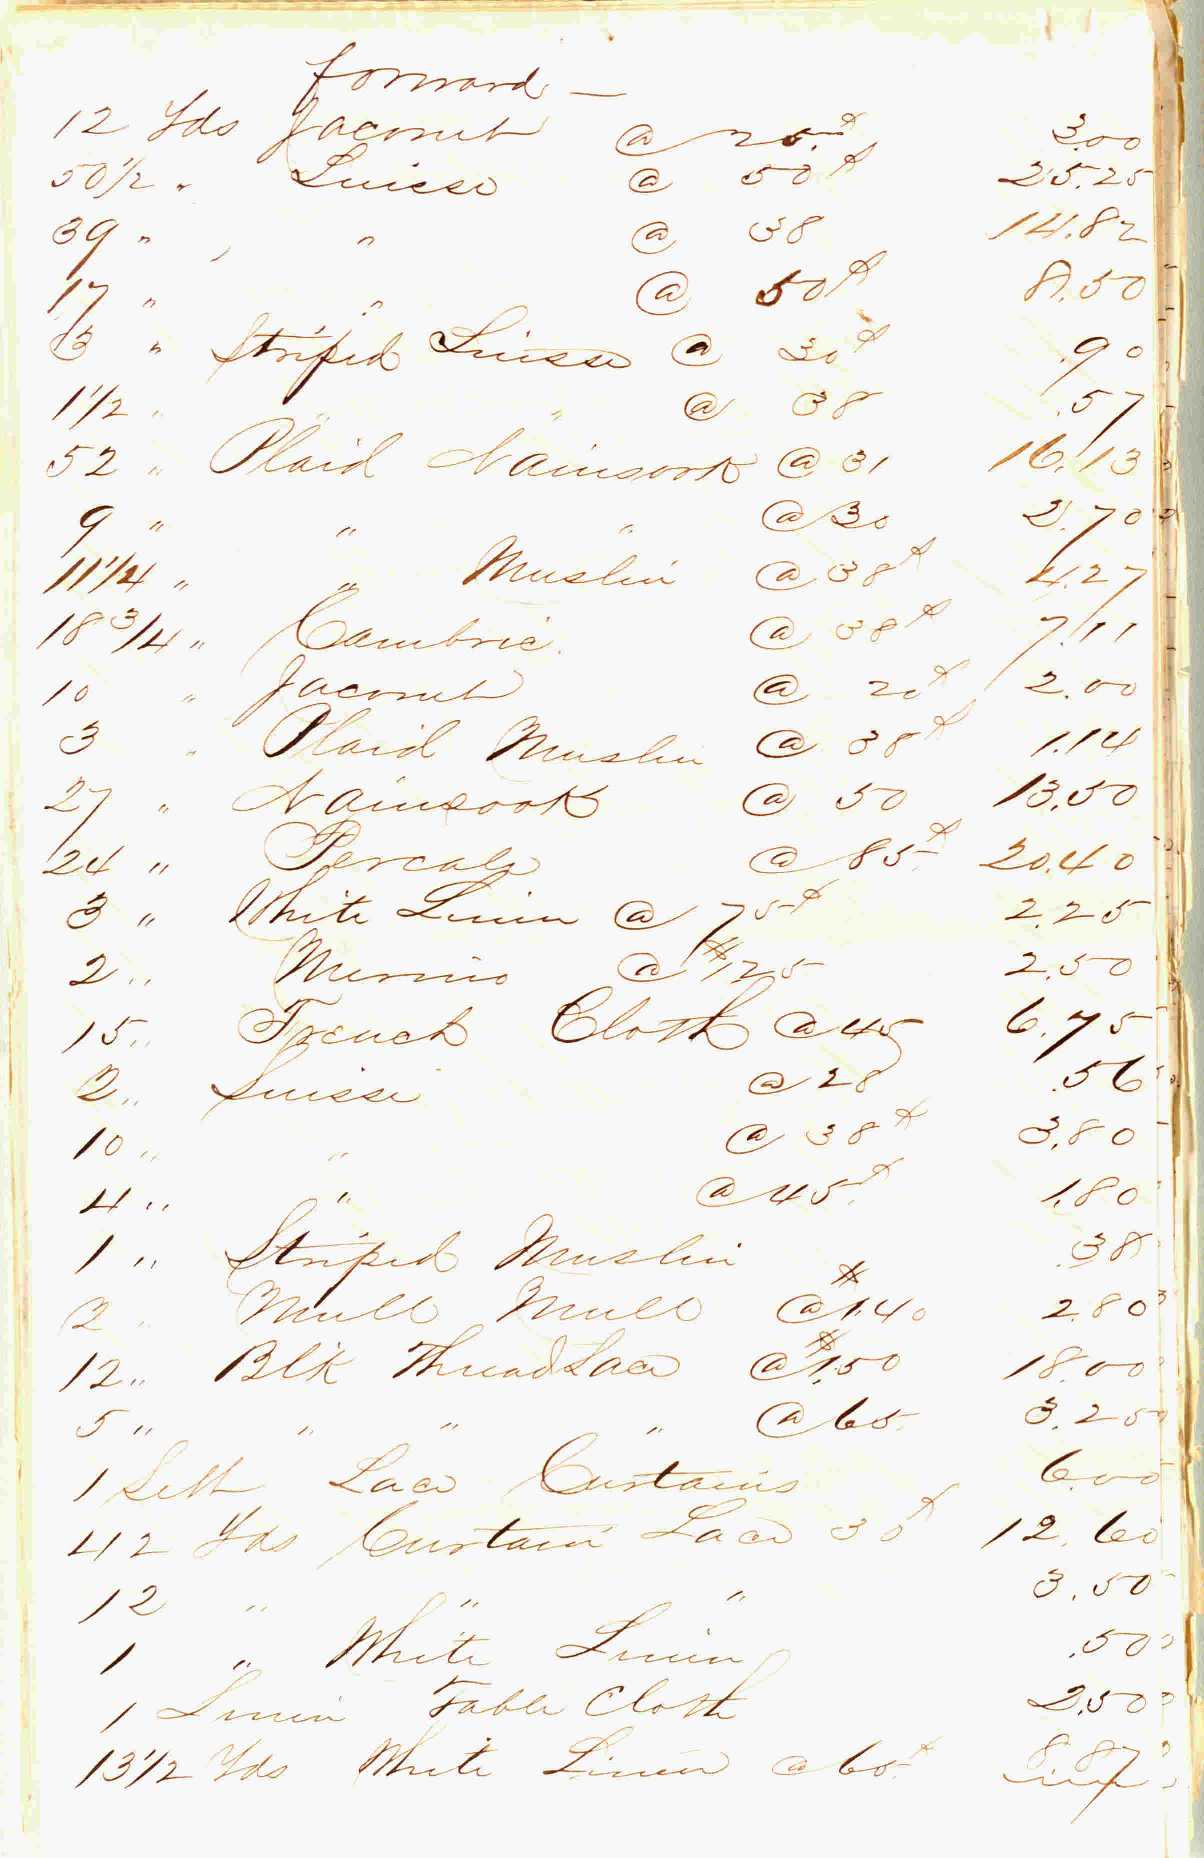 forward —
12 Yds Jaconet @ 25.¢ 3.00
50 1/2 " Suisse @ 50¢ 25.25
39 " " @ 38 14.82
17 " " @ 50¢ 8.50
3 " Striped Suisse @ 30¢ .90
1 1/2 " " " @ 38 .57
52 " Plaid Nainsook @ 31 16.13
9 " " " @ 30 2.70
11 1/4 " " Muslin @ 38¢ 4.27
18 3/4 " Cambric @ 38¢ 7.11
10 " Jaconet @ 20¢ 2.00
3 " Plaid Muslin @ 38¢ 1.14
27 " Nainsook @ 50 13.50
24 " Percale @ 85¢ 20.40
3 " White Linin @ 75¢ 2.25
2 " Merino @ $1,25 2.50
15 " French Cloth @ 45 6.75
2 " Suisse @ 28 .56
10 " " @ 38¢ 3.80
4 " " @ 45¢ 1.80
1 " Striped Muslin .38
2 " Mull Mull @ $1.40 2.80
12 " Blk Thread Lace @ $1.50 18.00
5 " " " " @ 65 3.25
1 Sett Lace Curtains 6.00
42 Yds Curtain Lace 30¢ 12.60
12 " " " 3.50
1 " White Linin .50
1 Linin Table Cloth 2.50
13 1/2 Yds White Linin @ 65¢ 8.87